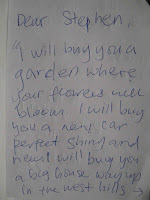 Dear Stephen,
"I will buy you a
garden where
your flowers will
bloom I will buy
you a new car
perfect shiny and
new I will buy you
a big house way up
in the west hills →